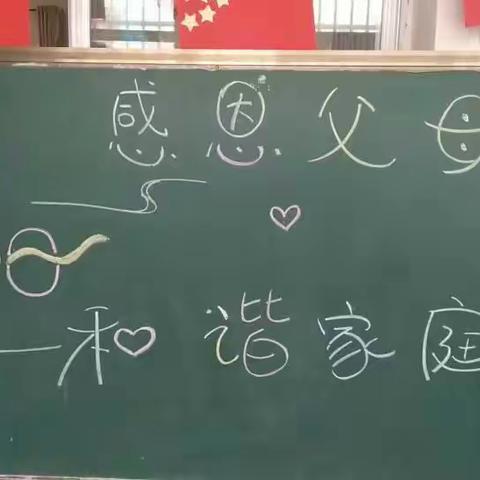 感恩父母
一和谐家庭